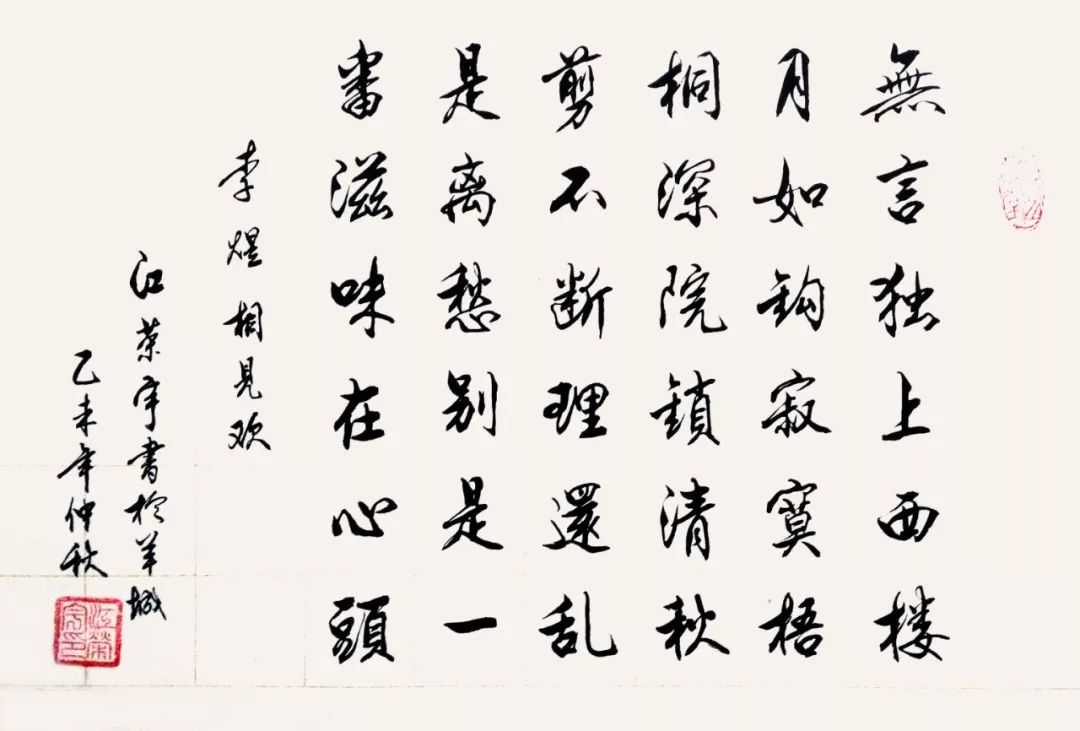 無言独上西楼
月如鈎寂寞梧
桐深院鎖清秋
剪不断理還乱
是离愁别是一
番滋味在心頭
李煜相見欢
江荣宇書於羊城
乙未年仲秋